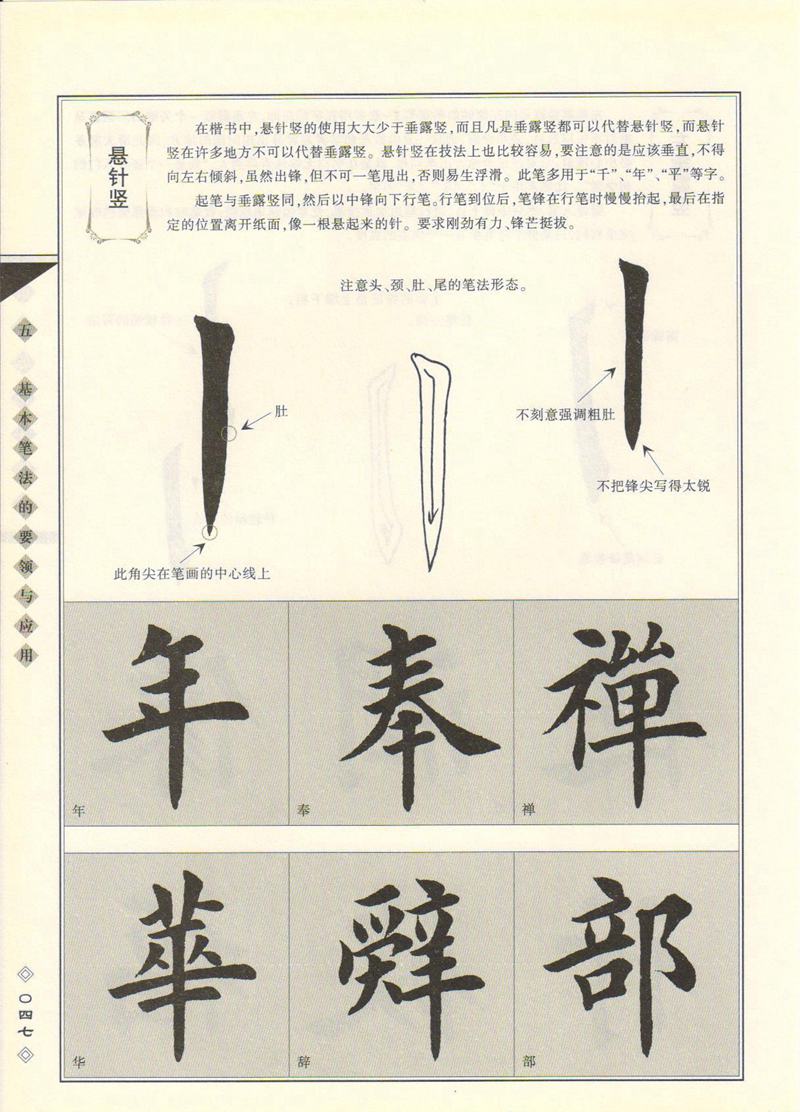 悬针竖
在楷书中,悬针竖的使用大大少于垂露竖,而且凡是垂露竖都可以代替悬针竖,而悬针
竖在许多地方不可以代替垂露竖。悬针竖在技法上也比较容易,要注意的是应该垂直,不得
向左右倾斜,虽然出锋,但不可一笔甩出,否则易生浮滑。此笔多用于“千”、“年”、“平”等字。
起笔与垂露竖同,然后以中锋向下行笔。行笔到位后,笔锋在行笔时慢慢抬起,最后在指
定的位置离开纸面,像一根悬起来的针。要求刚劲有力、锋芒挺拔。
注意头、颈、肚、尾的笔法形态。
肚
此角尖在笔画的中心线上
不刻意强调粗肚
不把锋尖写得太锐
五 基本笔法的要领与应用
年
奉
禪
年
奉
禅
華
辤
部
华
辞
部
〇四七